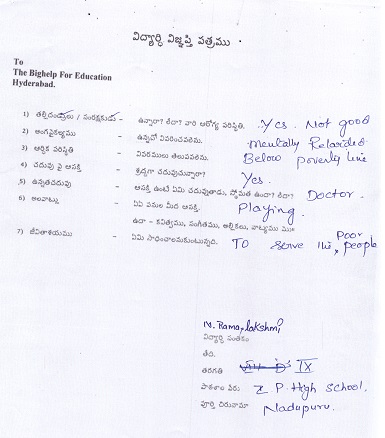 విద్యార్ధి విజ్ఞప్తి పత్రము
To
The Bighelp For Education
Hyderabad.
1) తల్లిదండ్రులు / సంరక్షకుడు - ఉన్నారా? లేదా? వారి ఆరోగ్య పరిస్థితి. Yes. Not good
2) అంగవైకల్యము - ఉన్నచో వివరించవలెను. mentally Retarded
3) ఆర్థిక పరిస్థితి - వివరములు తెలుపవలెను. Below poverty line
4) చదువు పై ఆసక్తి - శ్రద్ధగా చదువుచున్నారా? Yes.
5) ఉన్నతచదువు - ఆసక్తి ఉంటే ఏమి చదువుతాడు, స్తోమత ఉందా? లేదా? Doctor.
6) అలవాట్లు - ఏఏ పనుల మీద ఆసక్తి. Playing.
ఉదా - కవిత్వము, సంగీతము, అల్లికలు, నాట్యము
7) జీవితాశయము - ఏమి సాధించాలనుకుంటున్నది. To serve Poor people
M. Rama lakshmi
విద్యార్ధి సంతకం
తేది.
తరగతి IX
పాఠశాల పేరు Z P. High School,
పూర్తి చిరునామా Nadupuru.